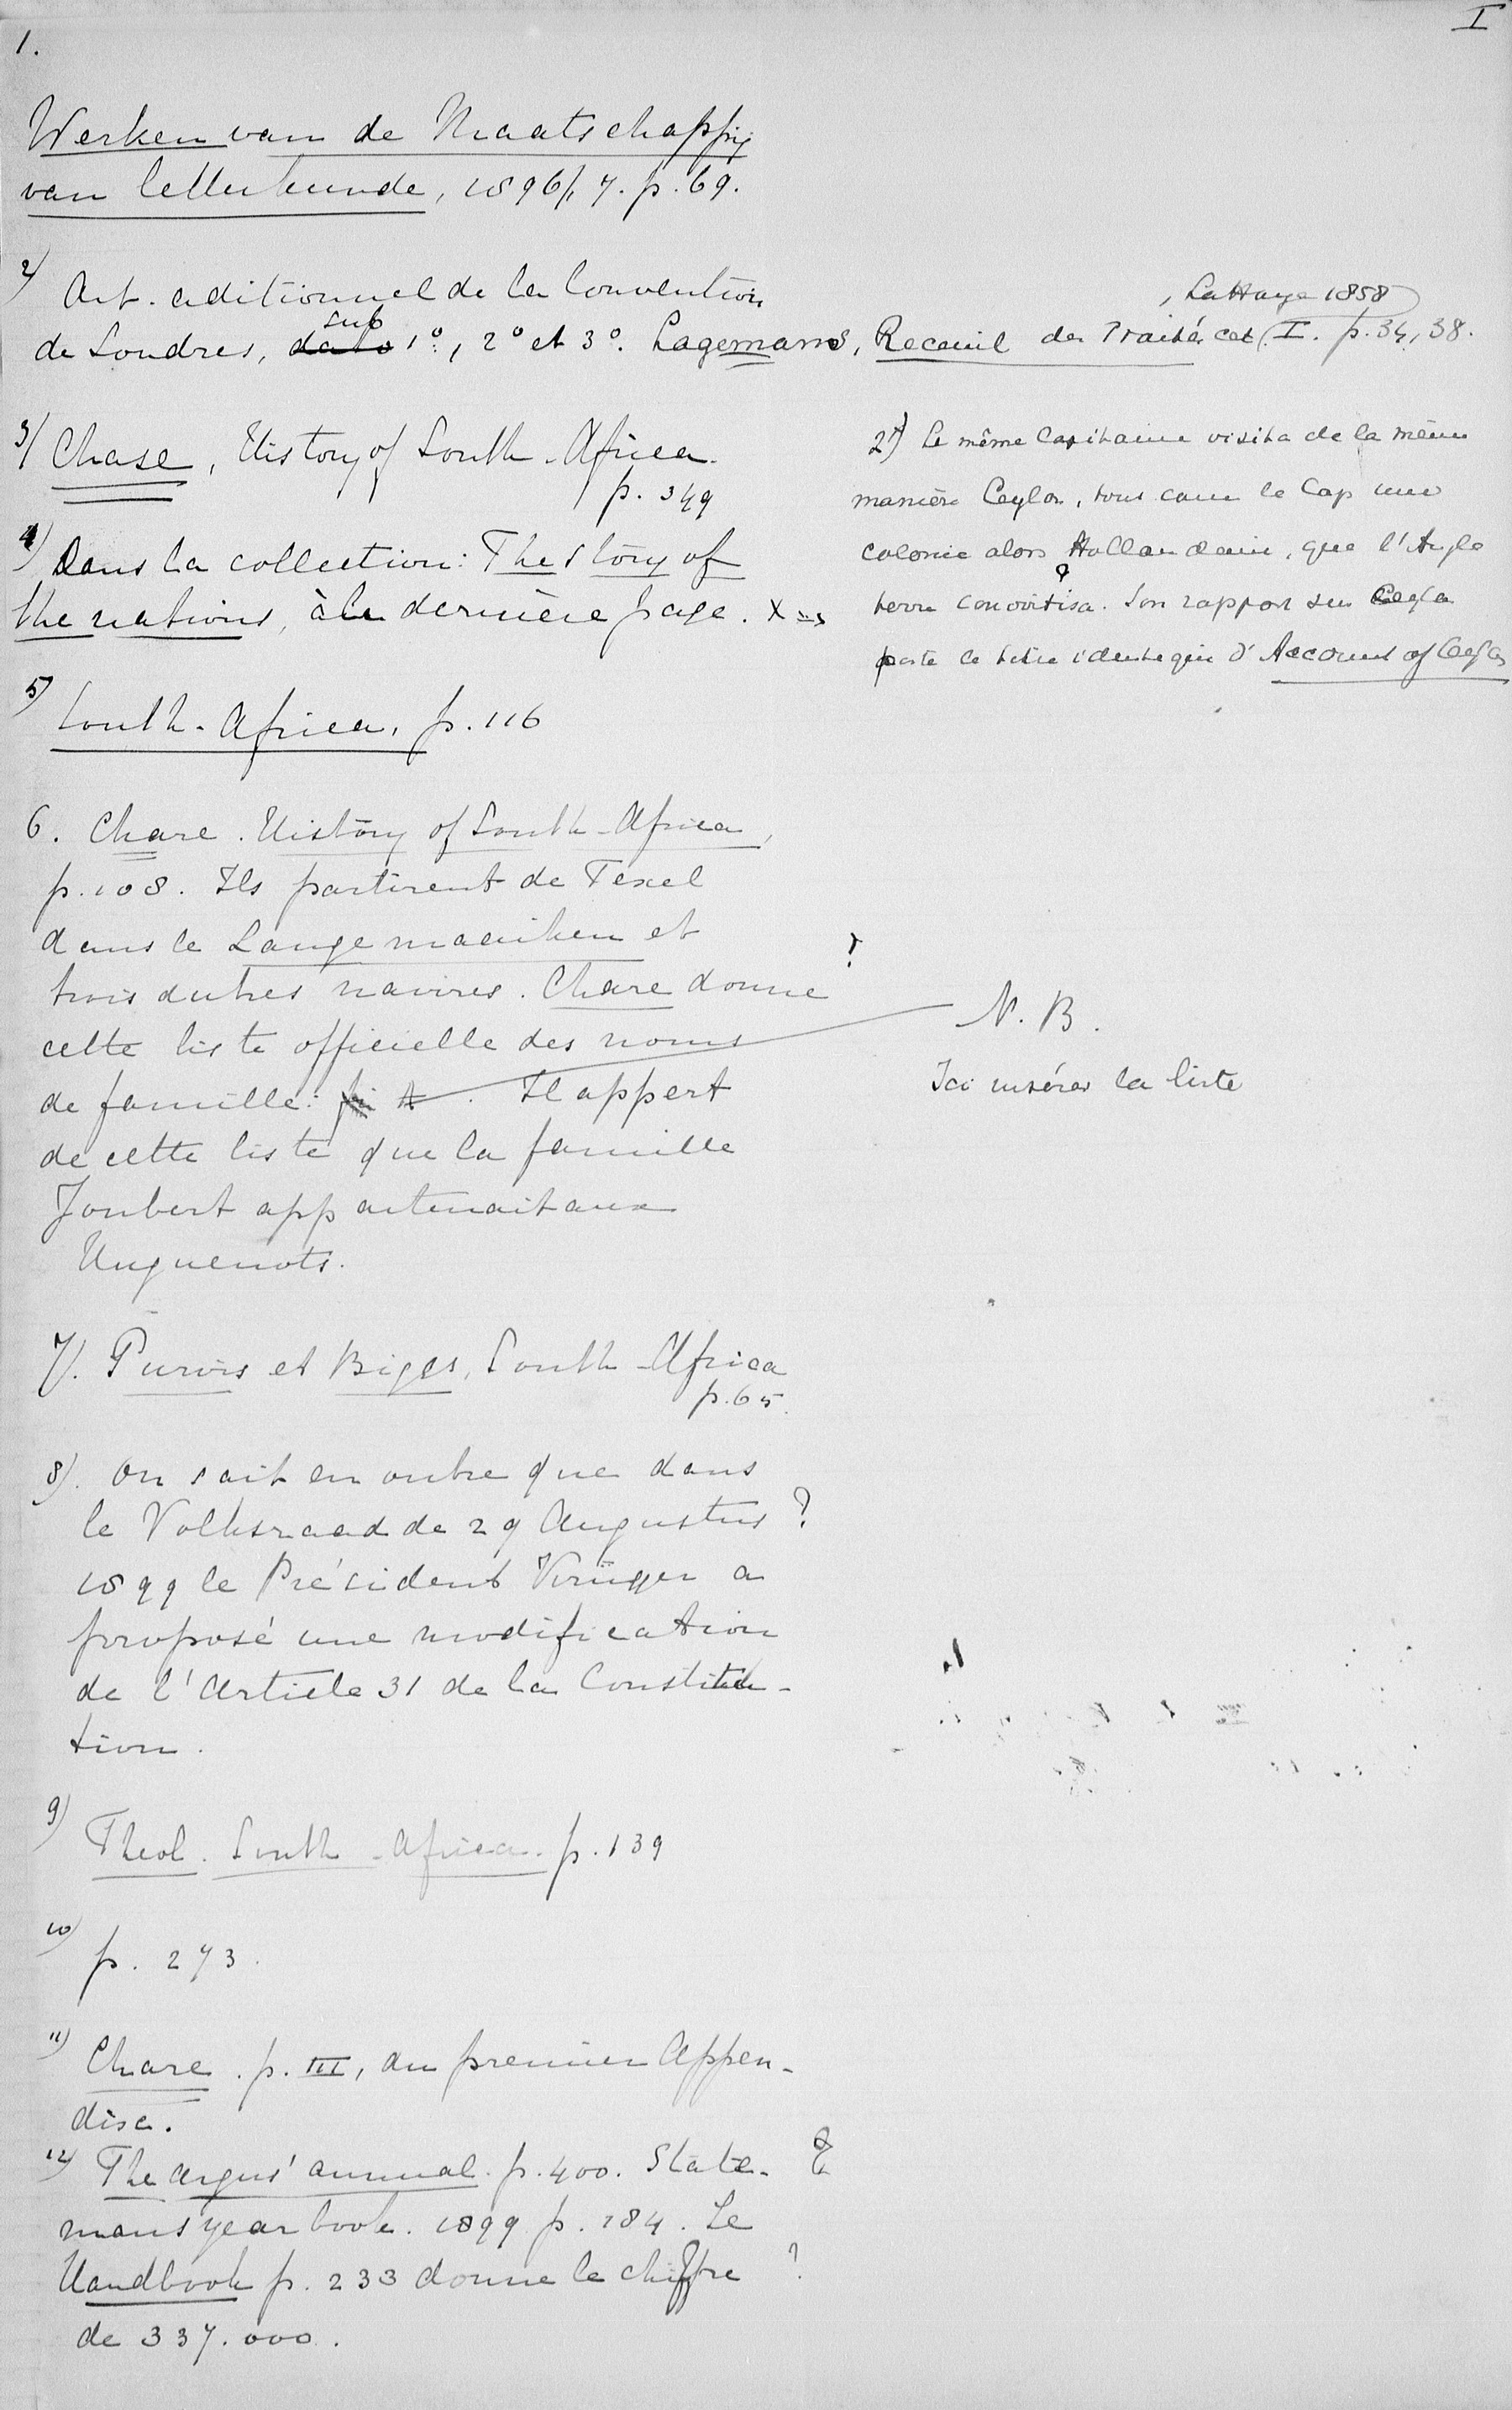 I
1.
Werken van de Maatschappij
van letterkunde, 1896/7. p. 69.
2) Art. aditionnel de la Convention
de Londres, dato sub 1°, 2° et 3°. Lagemans, Receuil des Traités cet. I. p. 34, 38.
, La Haye 1858
3) Chase, History of South-Africa
p. 349
4) Dans la collection: The story of
the nations, à la dernière page. X =
2) Le même Capitaine visita de la même
manière Ceylon, tout comme le Cap une
colonie alors Hollandaise, que l'Angle
terre convoitisa. Son rapport sur Ceylon
porte le titre identique d'Account of Ceylon
5) South-Africa, p. 116
6. Chase. History of South-Africa,
p. 108. Ils partirent de Texel
dans le Lange maaiken et
trois autres navires. Chase donne
cette liste officielle des noms
de famille: Il appert
de cette liste que la famille
Joubert appartenait aux
Huguenots.
N. B.
Ici insérer la liste
7). Purvis et Biggs, South-Africa
p. 65.
8). On sait en outre que dans
le Volksraad de 29 Augustus ?
1899 le Président Krüger a
proposé une modification
de l'Article 31 de la Constitu-
tion.
9) Theal. South-Africa. p. 139
10) p. 273.
11) Chase. p. III, du premier Appen-
dise.
12) The Argus' annual. p. 400. State-
mans year book. 1899 p. 184. Le
Handbook p. 233 donne le chiffre ?
de 337.000.